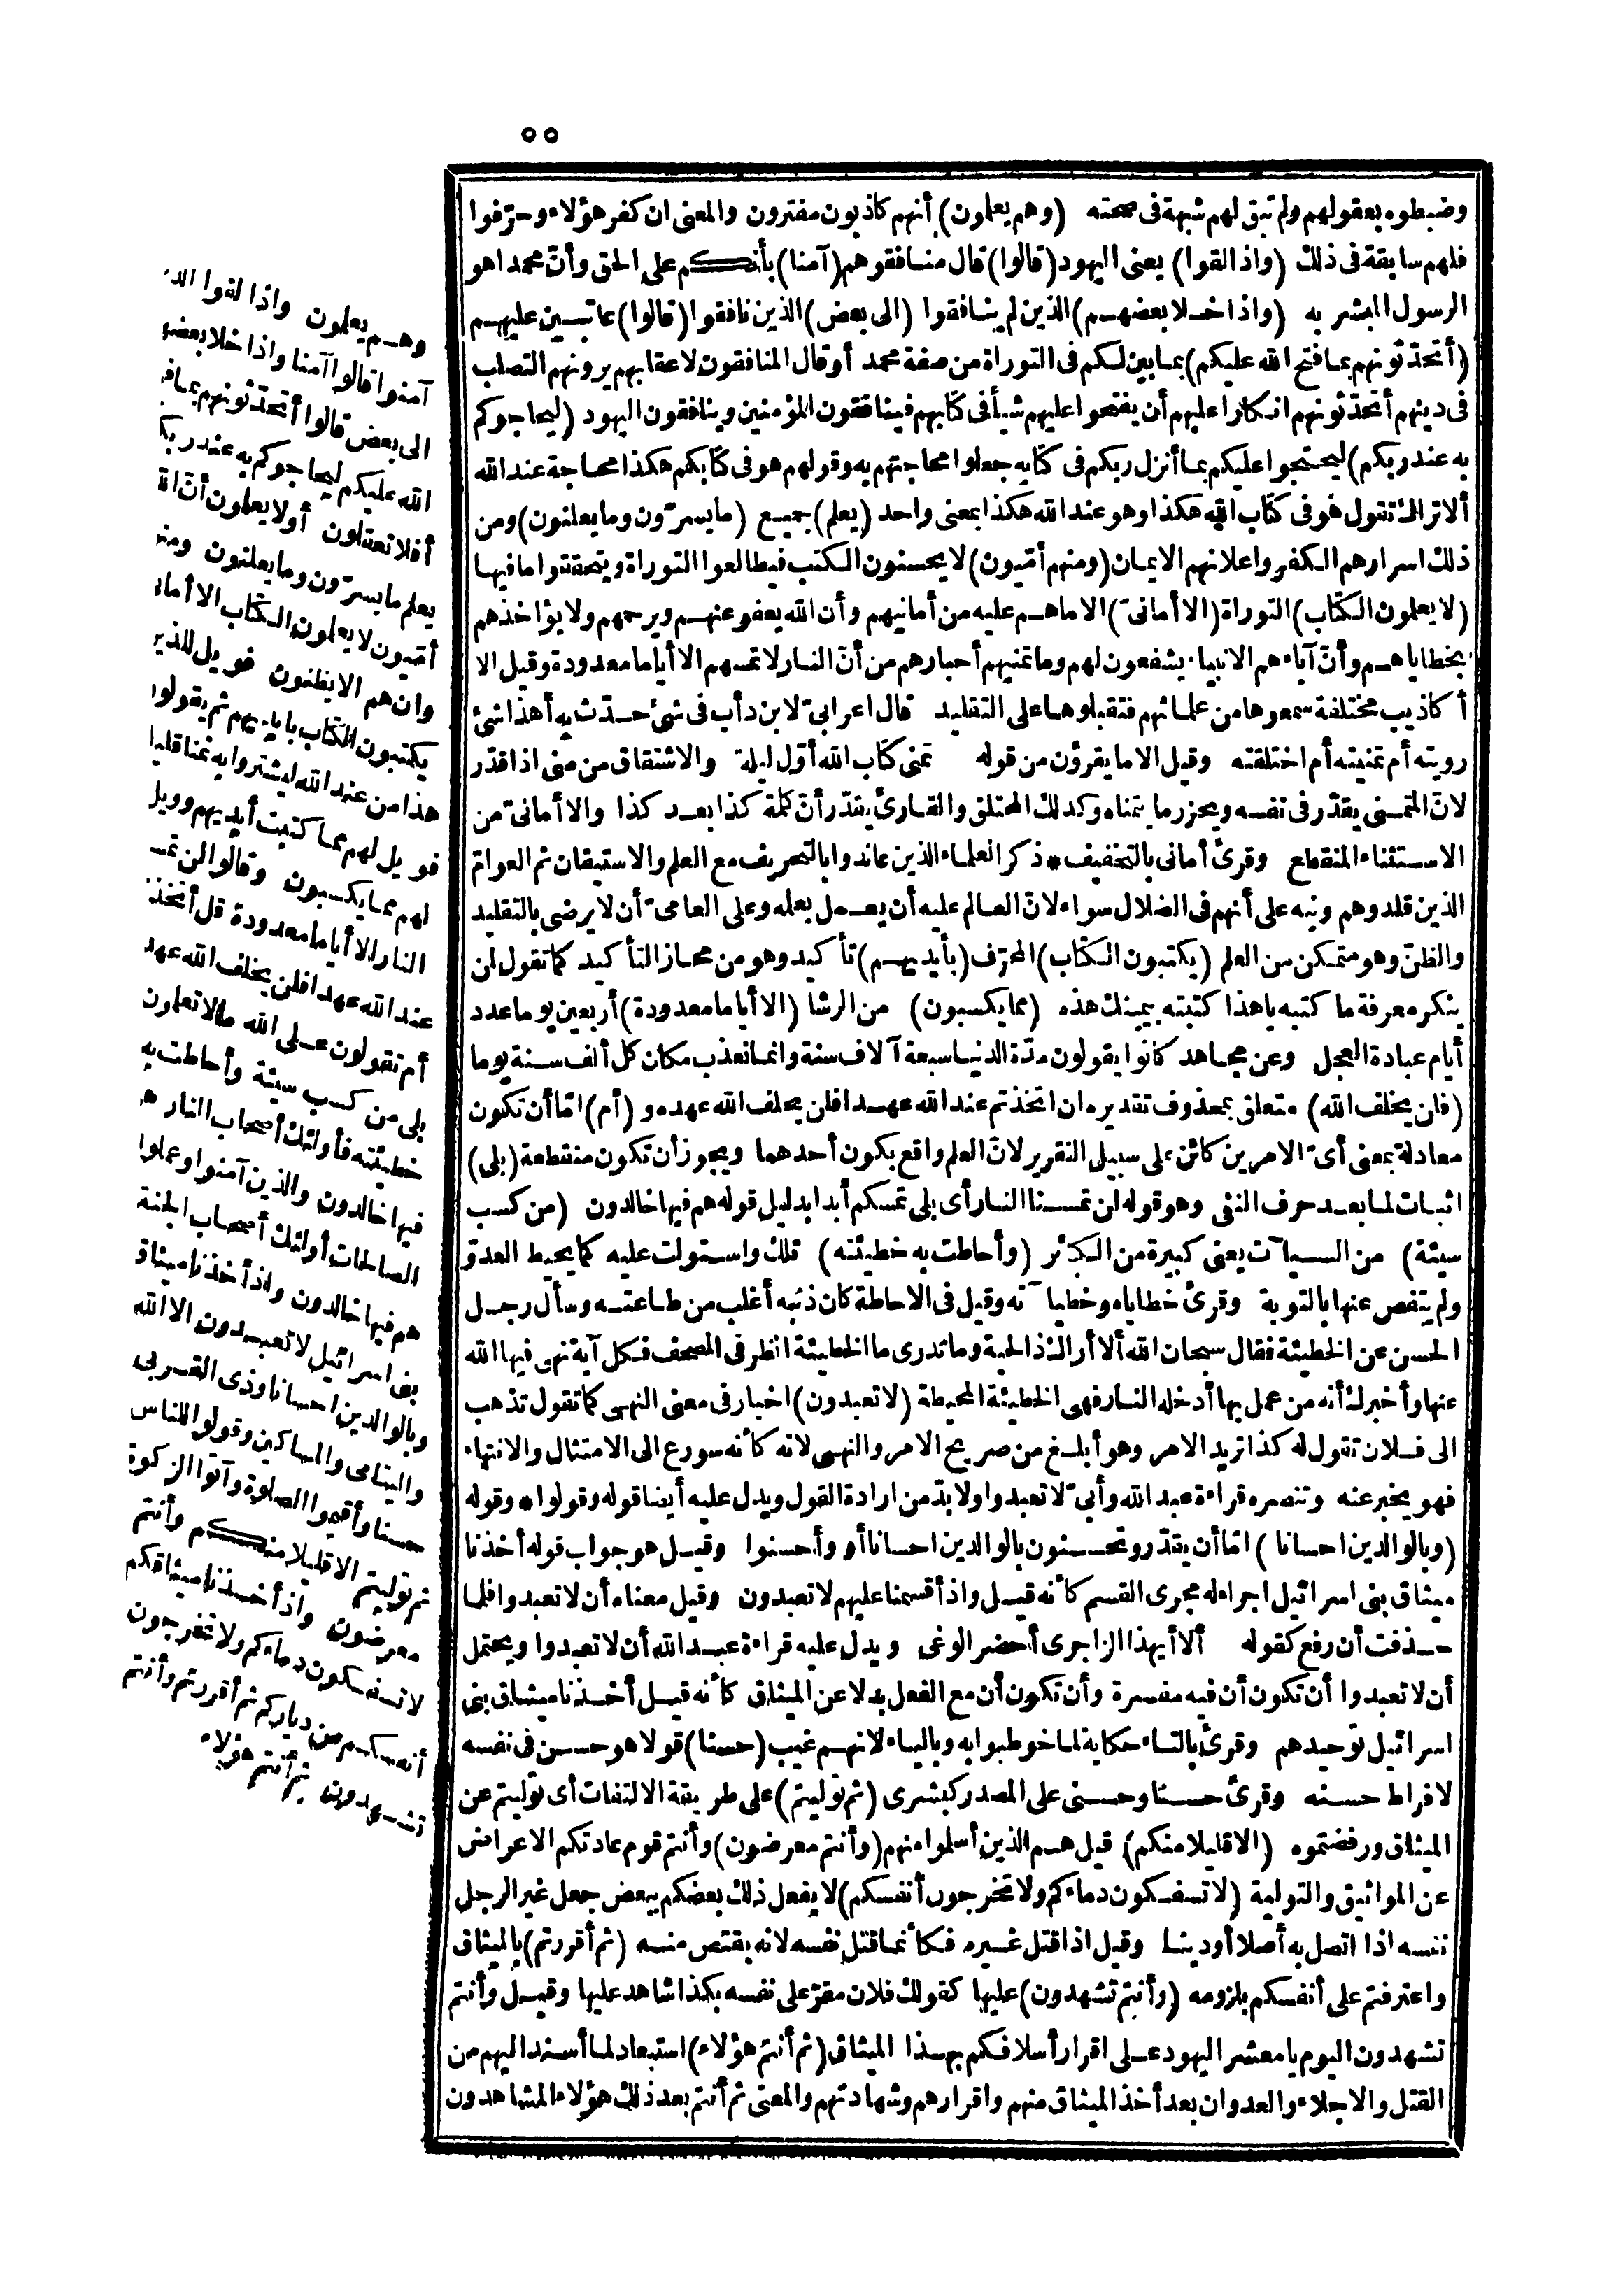 ٥٥
وضبطوه بعقولهم ولم تبق لهم شبهة فى صحته (وهم يعلمون) أنهم كاذبون مفترون والمعنى ان كفر هؤلاء وحرّفوا
فلهم سابقة فى ذلك (واذا لقوا) يعنى اليهود (قالوا) قال منافقوهم (آمنا) بأنكم على الحق وأنّ محمدا هو
الرسول المبشر به (واذا خلا بعضهم) الذين لم ينافقوا (الى بعض) الذين نافقوا (قالوا) عاتبين عليهم
(أتحدّثونهم بما فتح الله عليكم) بما بين لكم فى التوراة من صفة محمد أو قال المنافقون لاعقابهم يرونهم التصلب
فى دينهم أتحدّثونهم انكارا عليهم أن يفتحوا عليهم شيأ فى كتابهم فينافقون المؤمنين وينافقون اليهود (ليحاجوكم
به عند ربكم) ليحتجوا عليكم بما أنزل ربكم فى كتابه جعلوا محاجتهم به وقولهم هو فى كتابكم هكذا محاجة عند الله
ألا تراك تقول هو فى كتاب الله هكذا وهو عند الله هكذا بمعنى واحد (يعلم) جميع (ما يسرّون وما يعلنون) ومن
ذلك اسرارهم الكفر واعلانهم الايمان (ومنهم أمّيون) لا يحسنون الكتب فيطالعوا التوراة ويتحققوا ما فيها
(لا يعلمون الكتاب) التوراة (الا أمانىّ) الا ما هم عليه من أمانيهم وأن الله يعفو عنهم ويرحمهم ولا يؤاخذهم
بخطاياهم وأنّ آباءهم الانبياء يشفعون لهم وما تمنيهم أحبارهم من أنّ النار لا تمسهم الا أياما معدودة وقيل الا
أكاذيب مختلفة سمعوها من علمائهم فتقبلوها على التقليد قال اعرابىّ لابن دأب فى شئ حدّث به أهذا شئ
رويته أم تمنيته أم اختلقته وقيل الا ما يقرؤن من قوله تمنى كتاب الله أوّل ليلة والاشتقاق من منى اذا قدّر
لانّ المتمنى يقدّر فى نفسه ويحزر ما يتمناه وكذلك المختلق والقارئ يقدّر أنّ كلمة كذا بعد كذا والا أمانىّ من
الاستثناء المنقطع وقرئ أمانى بالتخفيف * ذكر العلماء الذين عاندوا بالتحريف مع العلم والاستيقان ثم العوامّ
الذين قلدوهم ونبه على أنهم فى الضلال سواء لانّ العالم عليه أن يعمل بعلمه وعلى العامىّ أن لا يرضى بالتقليد
والظنّ وهو متمكن من العلم (يكتبون الكتاب) المحرّف (بأيديهم) تأكيد وهو من مجاز التأكيد كما تقول لمن
ينكر معرفة ما كتبه يا هذا كتبته بيمينك هذه (مما يكسبون) من الرشا (الا أياما معدودة) أربعين يوما عدد
أيام عبادة العجل وعن مجاهد كانوا يقولون مدّة الدنيا سبعة آلاف سنة وانما نعذب مكان كل ألف سنة يوما
(فلن يخلف الله) متعلق بمحذوف تقديره ان اتخذتم عند الله عهدا فلن يخلف الله عهده و (أم) امّا أن تكون
معادلة بمعنى أىّ الامرين كائن على سبيل التقرير لانّ العلم واقع بكون أحدهما ويجوز أن تكون منقطعة (بلى)
اثبات لما بعد حرف النفى وهو قوله لن تمسنا النار أى بلى تمسكم أبدا بدليل قوله هم فيها خالدون (من كسب
سيئة) من السيآت يعنى كبيرة من الكبائر (وأحاطت به خطيئته) تلك واستولت عليه كما يحيط العدوّ
ولم يتفص عنها بالتوبة وقرئ خطاياه وخطيآته وقيل فى الاحاطة كان ذنبه أغلب من طاعته وسأل رجل
الحسن عن الخطيئة فقال سبحان الله ألا أراك ذا لحية وما تدرى ما الخطيئة انظر فى المصحف فكل آية نهى فيها الله
عنها وأخبرك أنه من عمل بها أدخله النار فهى الخطيئة المحيطة (لا تعبدون) اخبار فى معنى النهى كما تقول تذهب
الى فلان تقول له كذا تريد الامر وهو أبلغ من صريح الامر والنهى لانه كأنه سورع الى الامتثال والانتهاء
فهو يخبر عنه وتنصره قراءة عبد الله وأبىّ لا تعبدوا ولا بدّ من ارادة القول ويدل عليه أيضا قوله وقولوا * وقوله
(وبالوالدين احسانا) امّا أن يقدّر وتحسنون بالوالدين احسانا أو وأحسنوا وقيل هو جواب قوله أخذنا
ميثاق بنى اسرائيل اجراء له مجرى القسم كأنه قيل واذ أقسمنا عليهم لا تعبدون وقيل معناه أن لا تعبدوا فلما
حذفت أن رفع كقوله ألا أيهذا الزاجرى أحضر الوغى ويدل عليه قراءة عبد الله أن لا تعبدوا ويحتمل
أن لا تعبدوا أن تكون أن فيه مفسرة وأن تكون أن مع الفعل بدلا عن الميثاق كأنه قيل أخذنا ميثاق بنى
اسرائيل توحيدهم وقرئ بالتاء حكاية لما خوطبوا به وبالياء لانهم غيب (حسنا) قولا هو حسن فى نفسه
لافراط حسنه وقرئ حسنا وحسنى على المصدر كبشرى (ثم توليتم) على طريقة الالتفات أى توليتم عن
الميثاق ورفضتموه (الا قليلا منكم) قيل هم الذين أسلموا منهم (وأنتم معرضون) وأنتم قوم عادتكم الاعراض
عن المواثيق والتولية (لا تسفكون دماءكم ولا تخرجون أنفسكم) لا يفعل ذلك بعضكم ببعض جعل غير الرجل
نفسه اذا اتصل به أصلا أو دينا وقيل اذا قتل غيره فكأنما قتل نفسه لانه يقتص منه (ثم أقررتم) بالميثاق
واعترفتم على أنفسكم بلزومه (وأنتم تشهدون) عليها كقولك فلان مقرّ على نفسه بكذا شاهد عليها وقيل وأنتم
تشهدون اليوم يا معشر اليهود على اقرار أسلافكم بهذا الميثاق (ثم أنتم هؤلاء) استبعاد لما أسند اليهم من
القتل والاجلاء والعدوان بعد أخذ الميثاق منهم واقرارهم وشهادتهم والمعنى ثم أنتم بعد ذلك هؤلاء المشاهدون
وهم يعلمون واذا لقوا
آمنوا قالوا آمنا واذا خلا
الى بعض قالوا أتحدّثونهم
الله عليكم ليحاجوكم به عند
أفلا تعقلون أولا يعلمون أنّ
يعلم ما يسرّون وما يعلنون
أمّيون لا يعلمون الكتاب الا
وان هم الا يظنون فويل
يكتبون الكتاب بايديهم ثم
هذا من عند الله ليشتروا به ثمنا
فويل لهم مما كتبت أيديهم وويل
لهم مما يكسبون وقالوا لن
النار الا أياما معدودة قل
عند الله عهدا فلن يخلف الله
أم تقولون على الله ما لا تعلمون
بلى من كسب سيئة وأحاطت به
خطيئته فأولئك أصحاب النار
فيها خالدون والذين آمنوا وعملوا
الصالحات أولئك أصحاب الجنة
هم فيها خالدون واذ أخذنا ميثاق
بنى اسرائيل لا تعبدون الا الله
وبالوالدين احسانا وذى القربى
واليتامى والمساكين وقولوا للناس
حسنا وأقيموا الصلوة وآتوا الزكوة
ثم توليتم الا قليلا منكم وأنتم
معرضون واذ أخذنا ميثاقكم
لا تسفكون دماءكم ولا تخرجون
أنفسكم من دياركم ثم أقررتم وأنتم
تشهدون ثم أنتم هؤلاء